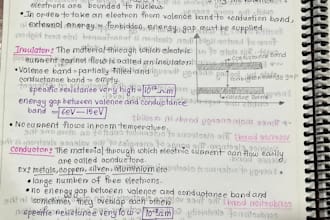 electrons are bounded to nucleus
• In order to take an electron from valence band to conduction band,
external energy = forbidden energy gap must be supplied
Insulator: The material through which electric
current cannot flow is called an insulator
• Valence band - partially filled and
conductance band = empty.
specific resistance very high =
energy gap between valence and conductance
band = 6eV – 15eV
• No current flows in room temperature.
Conductor: The material through which electric current can flow easily
are called conductors.
Ex: metals, copper, silver, aluminium etc
• large numbers of free electrons.
• no energy gap between valence and conductance band and
sometimes they overlap each other
specific resistance very low =